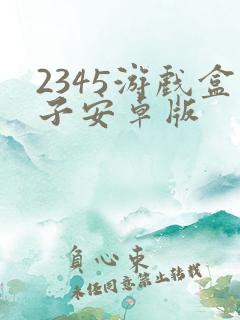 2345游戏盒
子安卓版
負心東
未经同意禁止转载